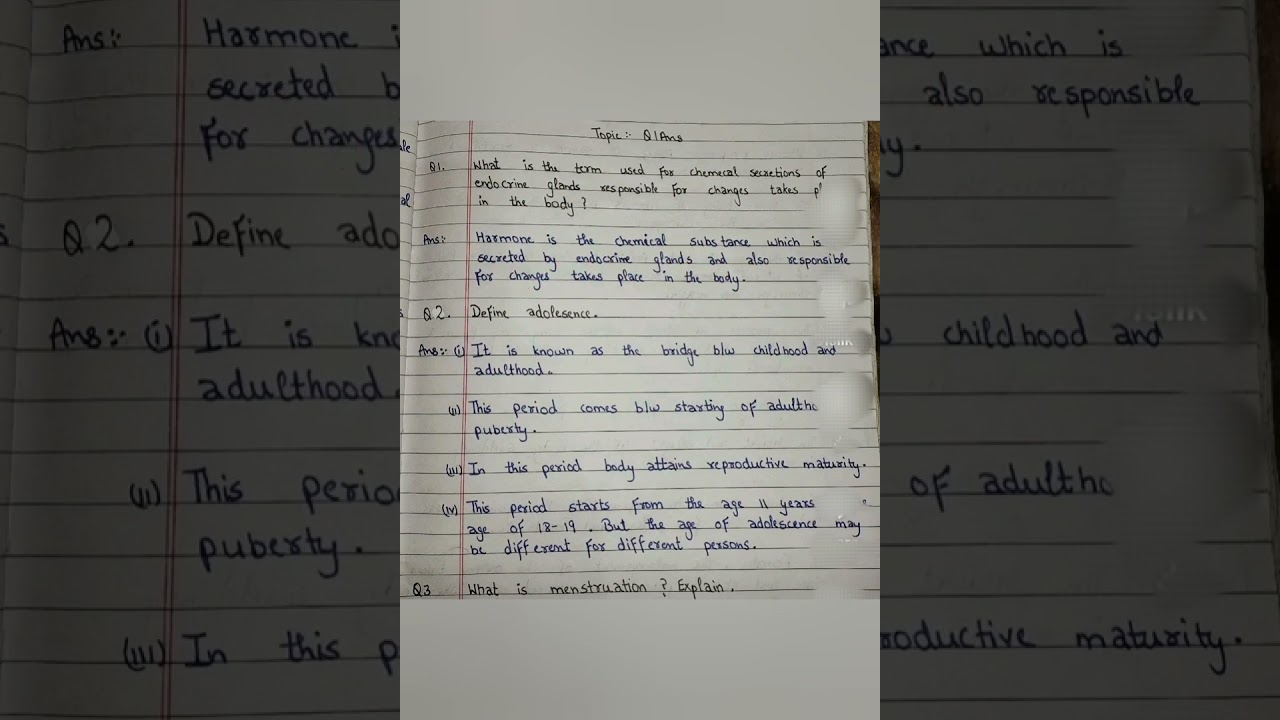 Topic:- Q1Ans
Q1. What is the term used for chemecal secretions of
endocrine glands responsible for changes takes
in the body?
Ans:- Harmone is the chemical substance which is
secreted by endocrine glands and also responsible
for changes takes place in the body.
Q2. Define adolesence.
Ans:- (i) It is known as the bridge b/w childhood and
adulthood.
(ii) This period comes b/w starting of
puberty.
(iii) In this period body attains reproductive maturity.
(iv) This period starts from the age 11 years
age of 18-19. But the age of adolescence may
be different for different persons.
Q3 What is menstruation? Explain.